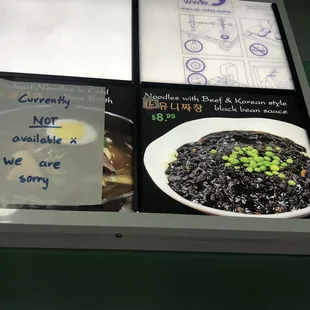 Wheat Noodles in Cold
Currently
NOT
available
we are
sorry
Noodles with Beef & Korean style
유니짜장 black bean sauce
$8.99